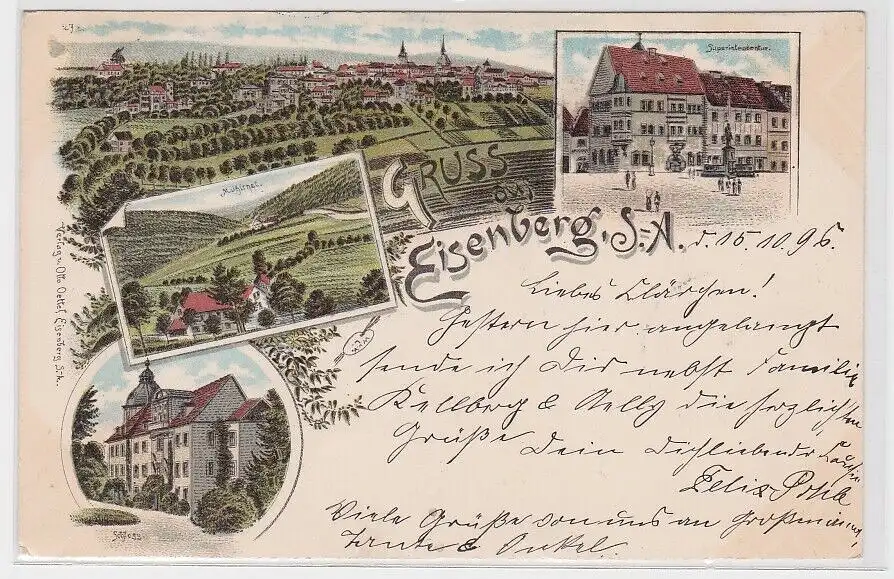 27.
Superintendentur.
Mühltal.
GRUSS
aus
Eisenberg, S.-A.
d. 15.10.96.
Liebes Clärchen!
Gestern hier angelangt
sende ich Dir nebst Familie
Kellberg & Nelly die herzlichsten
Grüße Dein Dichliebender
Felix
Viele Grüße von uns an Großmama,
Tante & Onkel.
Schloss
Verlag v. Otto Oettel, Eisenberg S.-A.